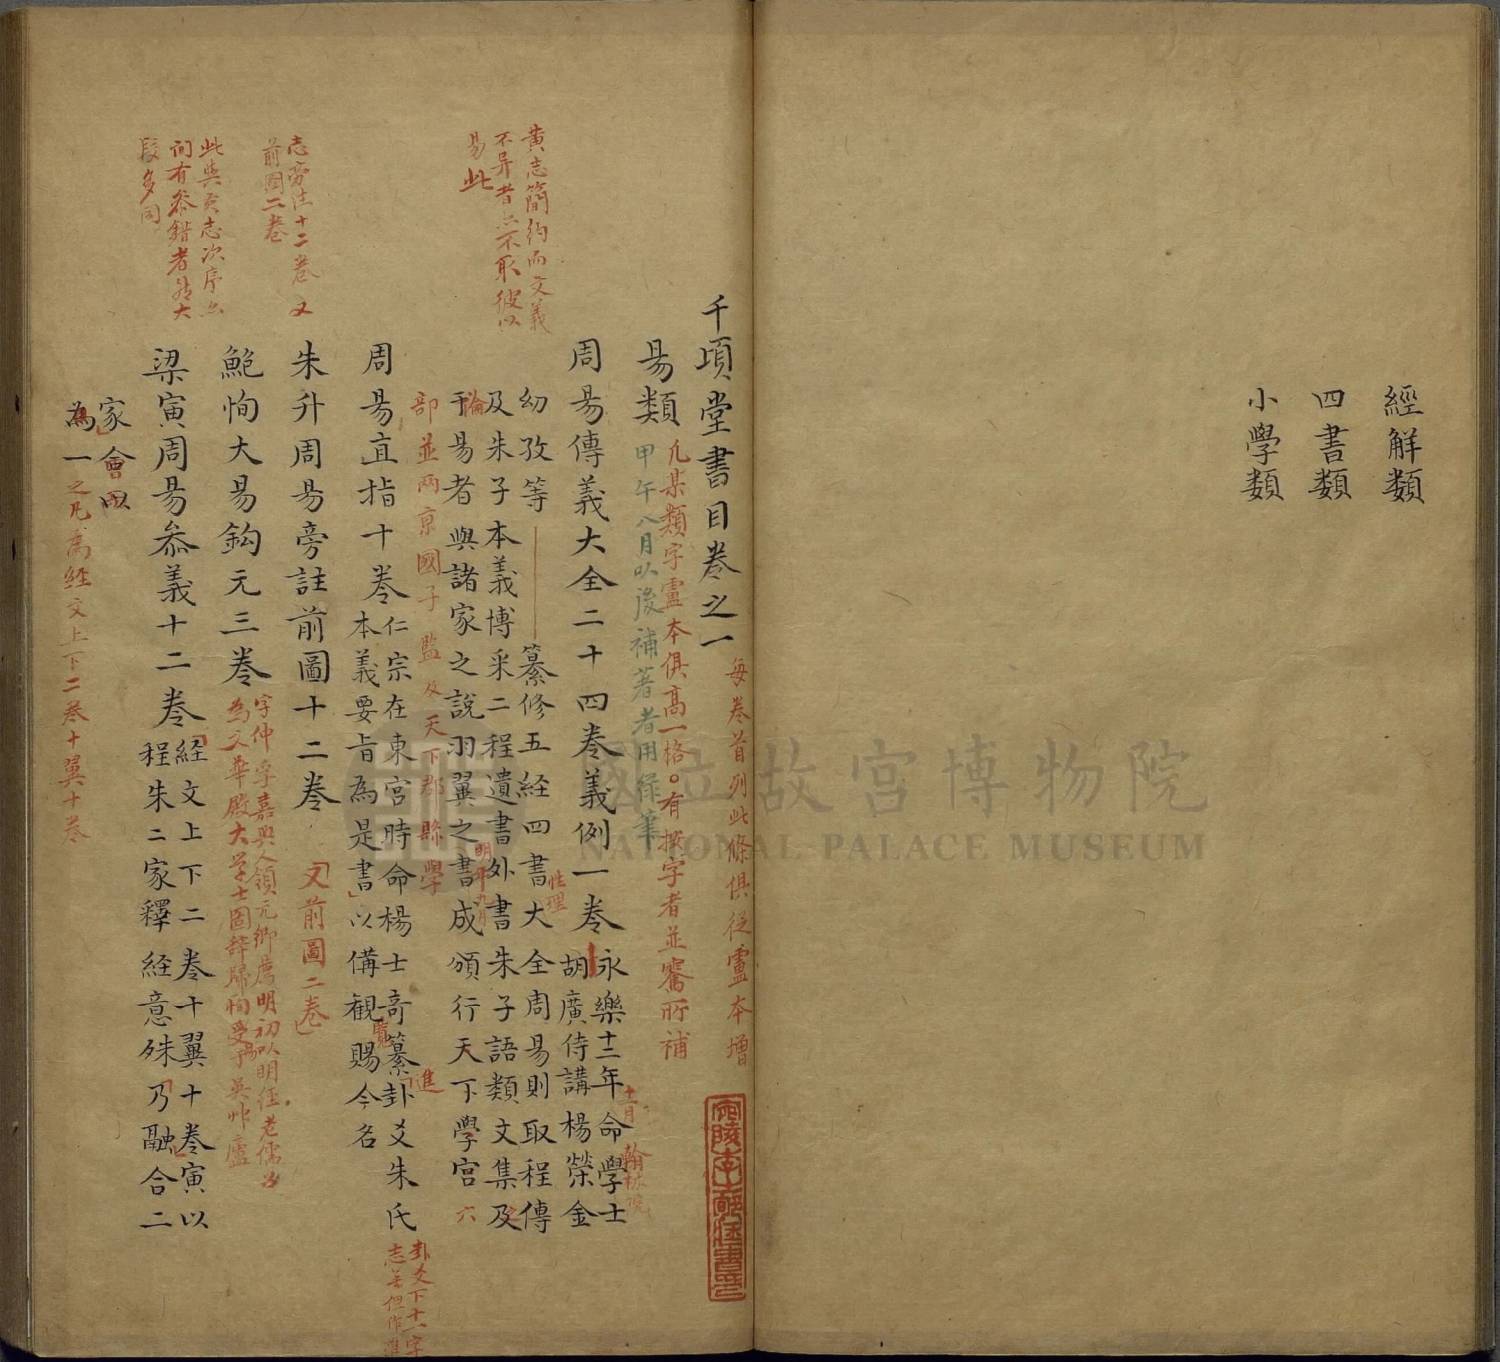 經解類
四書類
小學類
千頃堂書目卷之一
每卷首列此條俱從盧本增
易類
凡某類字盧本俱高一格○有按字者並騫所補
甲午八月以後補著者用綠筆
周易傳義大全二十四卷義例一卷
永樂十二年命學士
十一月
翰林院
胡廣侍講楊榮金
幼孜等
纂修五經四書大全周易則取程傳
性理
及朱子本義博采二程遺書外書朱子語類文集及
于易者與諸家之說羽翼之書成頒行天下學宮
論
明年九月
六
部並兩京國子監及天下郡縣學
黃志簡約而文義
不異者亦不取彼以
易此
周易直指十卷
仁宗在東宮時命楊士奇纂卦爻朱氏
本義要旨為是書以備觀賜今名
覽
進
卦爻下十一字
朱升周易旁註前圖十二卷
又前圖二卷
志旁注十二卷又
前圖二卷
鮑恂大易鈎元三卷
字仲孚嘉興人領元鄉薦明初以明經老儒
為文華殿大學士固辭歸恂受易吳草廬
此與黃志次序亦
間有參錯者然大
段多同
梁寅周易參義十二卷
經文上下二卷十翼十卷寅以
程朱二家釋經意殊乃融合二
家會
為一
經文上下二卷十翼十卷
國立故宮博物院
NATIONAL PALACE MUSEUM